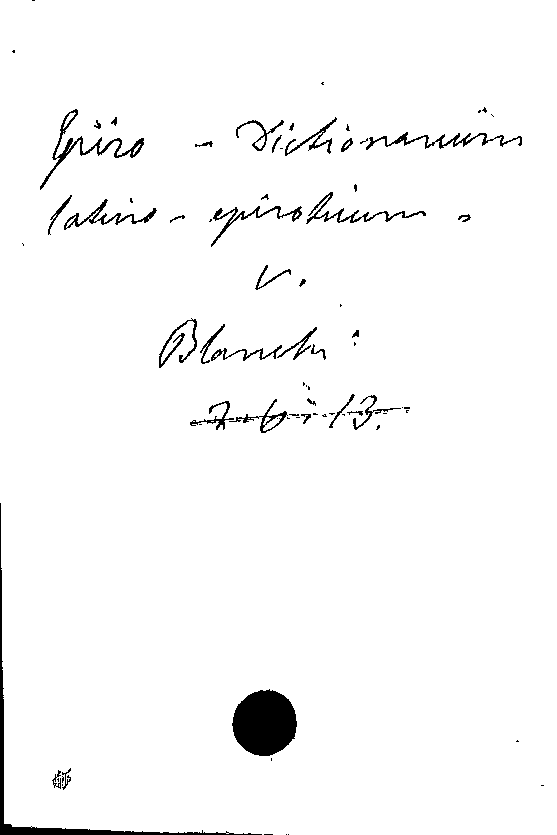 Epiro - Dictionarium
latino - epiroticum.
v.
Blanchi
7. 6. 13.